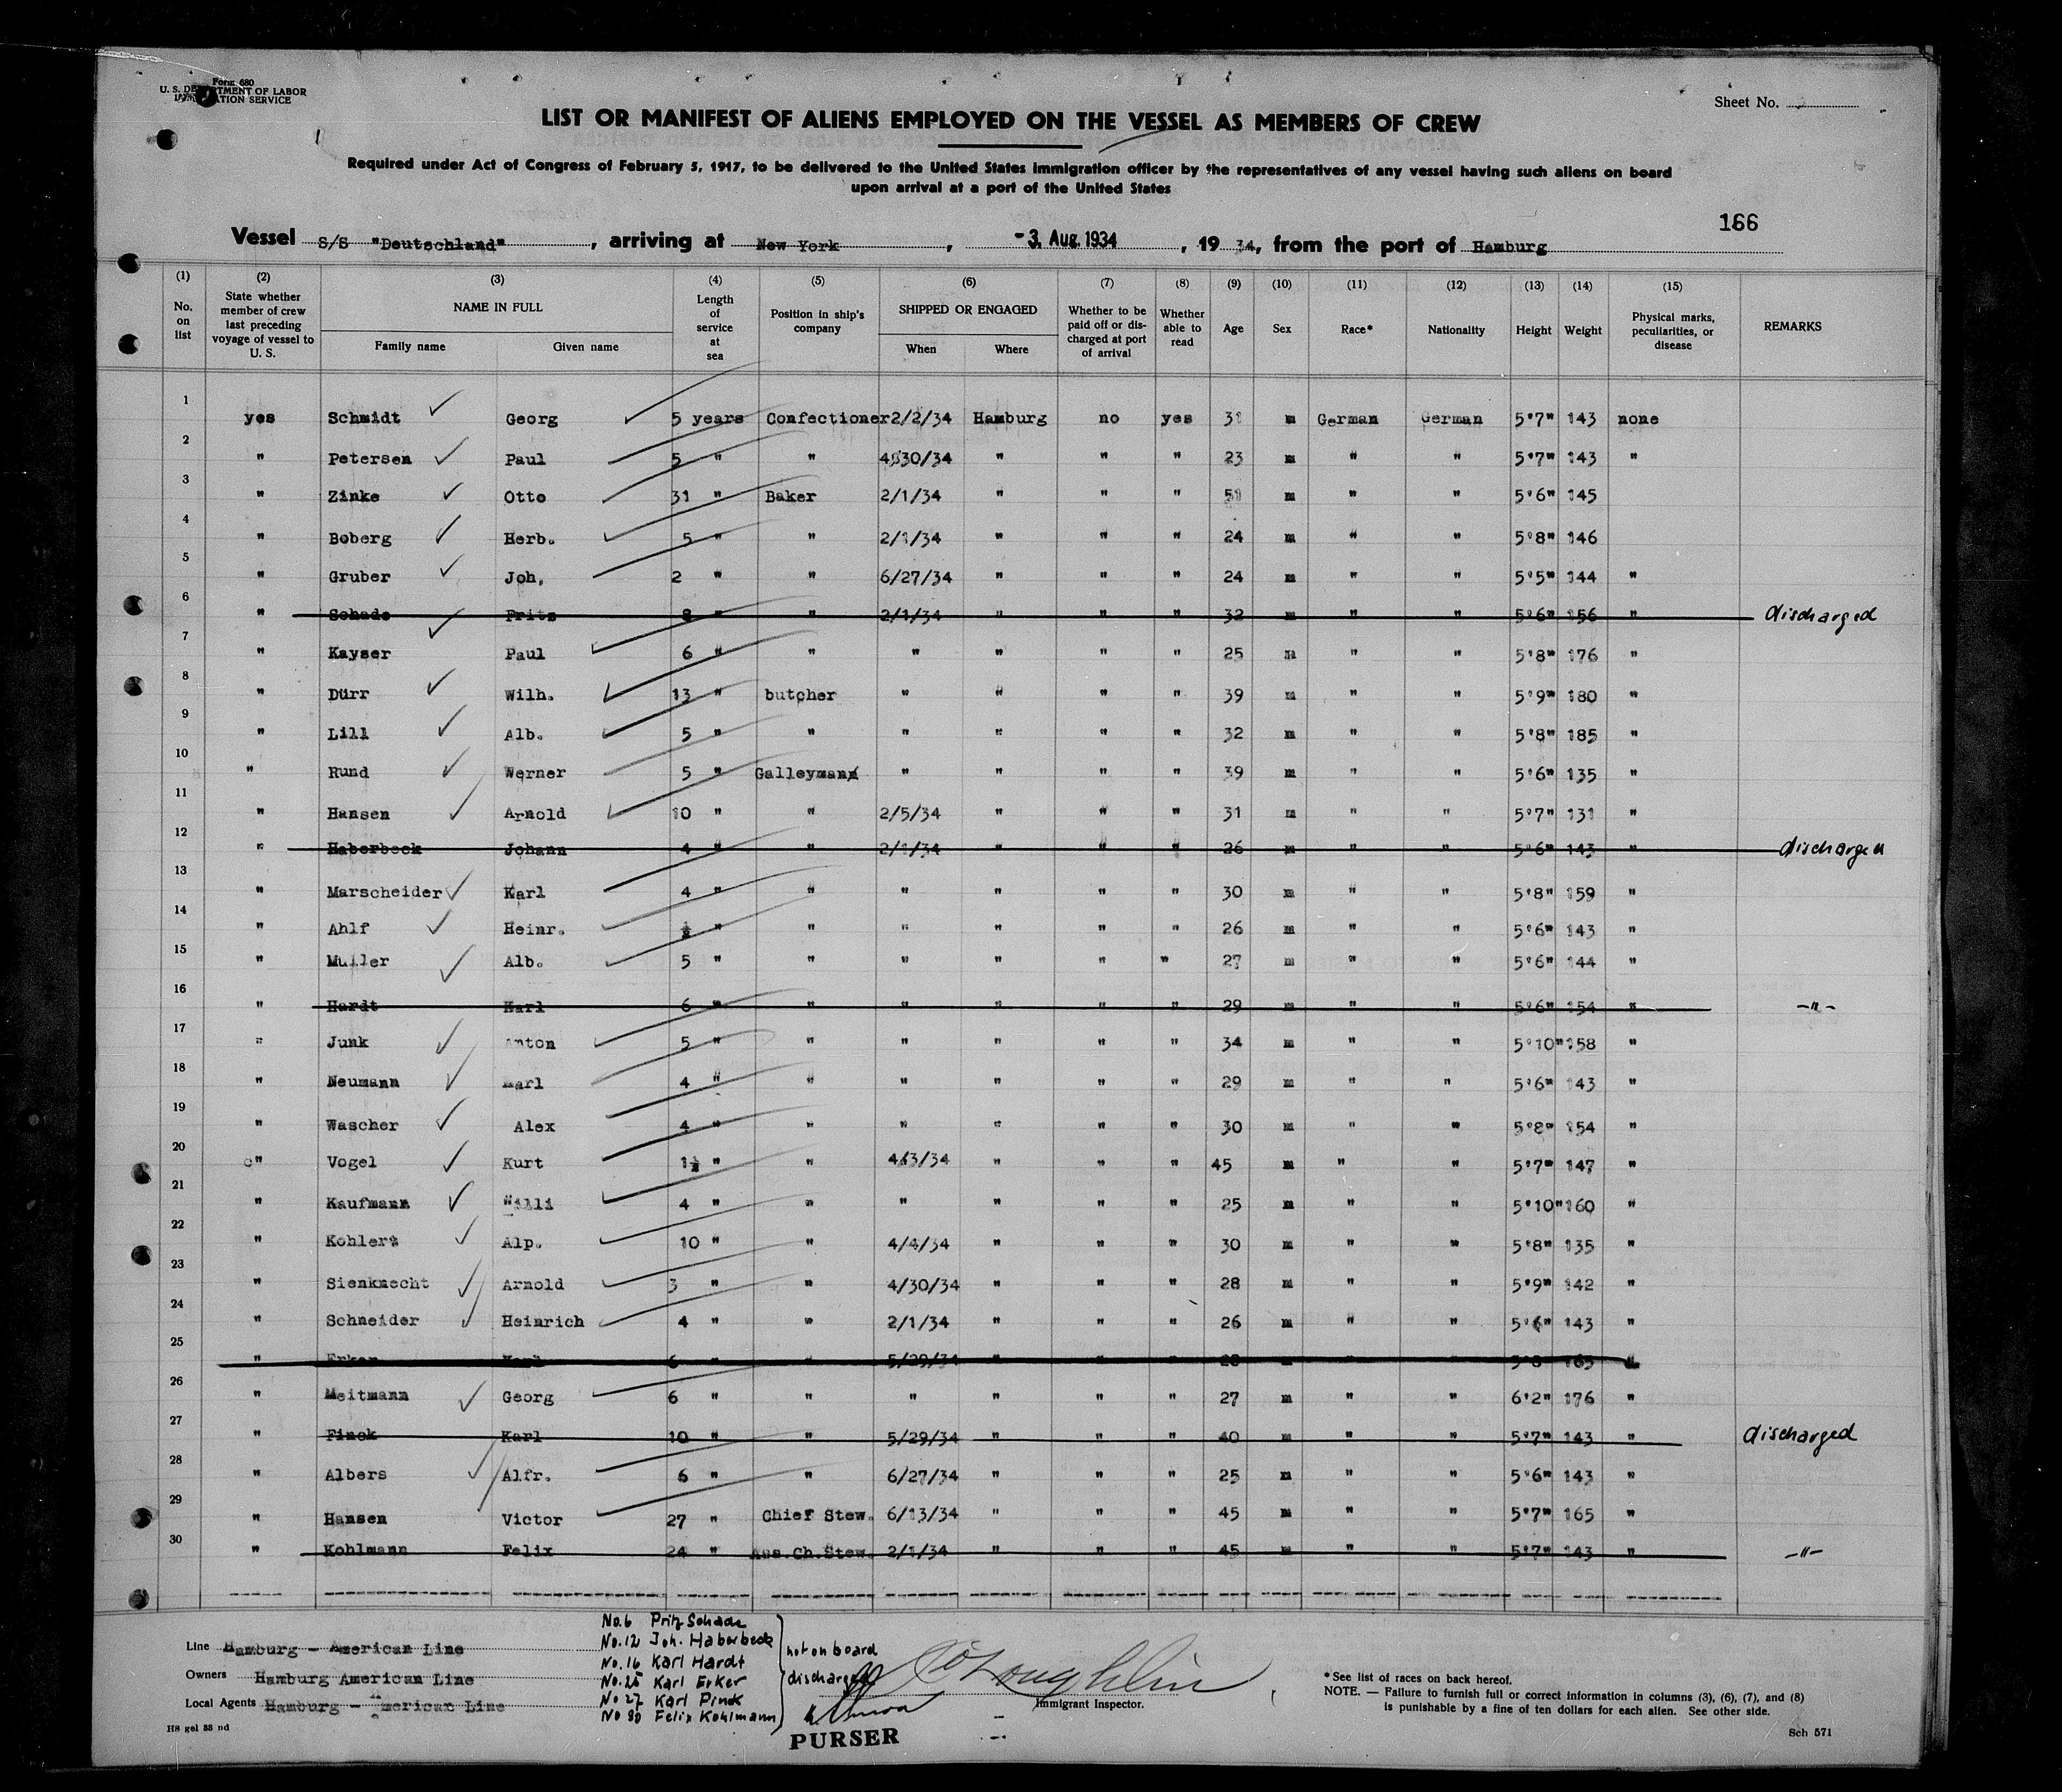 Form 680
U. S. DEPARTMENT OF LABOR
IMMIGRATION SERVICE
Sheet No.
LIST OR MANIFEST OF ALIENS EMPLOYED ON THE VESSEL AS MEMBERS OF CREW
Required under Act of Congress of February 5, 1917, to be delivered to the United States immigration officer by the representatives of any vessel having such aliens on board
upon arrival at a port of the United States
166
Vessel S/S "Deutschland", arriving at New York, -3. Aug. 1934, 19 34, from the port of Hamburg
(1) No. on list (2) State whether member of crew last preceding voyage of vessel to U. S. (3) NAME IN FULL Family name Given name (4) Length of service at sea (5) Position in ship's company (6) SHIPPED OR ENGAGED When Where (7) Whether to be paid off or discharged at port of arrival (8) Whether able to read (9) Age (10) Sex (11) Race* (12) Nationality (13) Height (14) Weight (15) Physical marks, peculiarities, or disease REMARKS
1 yes Schmidt Georg 5 years Confectioner 2/2/34 Hamburg no yes 31 m German German 5'7" 143 none
2 " Petersen Paul 5 " " 4/30/34 " " " 23 m " " 5'7" 143 "
3 " Zinke Otto 31 " Baker 2/1/34 " " " 51 m " " 5'6" 145
4 " Boberg Herb. 5 " " 2/1/34 " " " 24 m " " 5'8" 146
5 " Gruber Joh. 2 " " 6/27/34 " " " 24 m " " 5'5" 144 "
6 " Schade Fritz 8 " " 2/1/34 " " " 32 m " " 5'6" 156 " discharged
7 " Kayser Paul 6 " " " " " " 25 m " " 5'8" 176 "
8 " Dürr Wilh. 13 " butcher " " " " 39 m " " 5'9" 180 "
9 " Lill Alb. 5 " " " " " " 32 m " " 5'8" 185 "
10 " Rund Werner 5 " Galleyman " " " " 39 m " " 5'6" 135 "
11 " Hansen Arnold 10 " " 2/5/34 " " " 31 m " " 5'7" 131 "
12 " Haberbeck Johann 4 " " 2/1/34 " " " 26 m " " 5'6" 143 " discharged
13 " Marscheider Karl 4 " " " " " " 30 m " " 5'8" 159 "
14 " Ahlf Heinr. ½ " " " " " " 26 m " " 5'6" 143 "
15 " Muller Alb. 5 " " " " " " 27 m " " 5'6" 144 "
16 " Hardt Karl 6 " " " " " " 29 m " " 5'6" 154 " -"-
17 " Junk Anton 5 " " " " " " 34 m " " 5'10" 158 "
18 " Neumann Karl 4 " " " " " " 29 m " " 5'6" 143 "
19 " Wascher Alex 4 " " " " " " 30 m " " 5'8" 154 "
20 " Vogel Kurt 1½ " " 4/3/34 " " " 45 m " " 5'7" 147 "
21 " Kaufmann Willi 4 " " " " " " 25 m " " 5'10" 160 "
22 " Kohlert Alp. 10 " " 4/4/34 " " " 30 m " " 5'8" 135 "
23 " Sienknecht Arnold 3 " " 4/30/34 " " " 28 m " " 5'9" 142 "
24 " Schneider Heinrich 4 " " 2/1/34 " " " 26 m " " 5'6" 143 "
25 " Erker Karl 6 " " 5/29/34 " " " 28 m " " 5'8" 165 "
26 " Meitmann Georg 6 " " " " " " 27 m " " 6'2" 176 "
27 " Finck Karl 10 " " 5/29/34 " " " 40 m " " 5'7" 143 " discharged
28 " Albers Alfr. 6 " " 6/27/34 " " " 25 m " " 5'6" 143 "
29 " Hansen Victor 27 " Chief Stew. 6/13/34 " " " 45 m " " 5'7" 165 "
30 " Kohlmann Felix 24 " Ass.Ch.Stew. 2/1/34 " " " 45 m " " 5'7" 143 " -"-
No.6 Fritz Schade
No.12 Joh. Haberbeck
No.16 Karl Hardt
No.25 Karl Erker
No 27 Karl Finck
No 30 Felix Kohlmann
not on board
discharged
Line Hamburg - American Line
Owners Hamburg American Line
Local Agents Hamburg - American Line
H8 gel 88 nd
PURSER
Immigrant Inspector.
*See list of races on back hereof.
NOTE. — Failure to furnish full or correct information in columns (3), (6), (7), and (8)
is punishable by a fine of ten dollars for each alien. See other side.
Sch 571